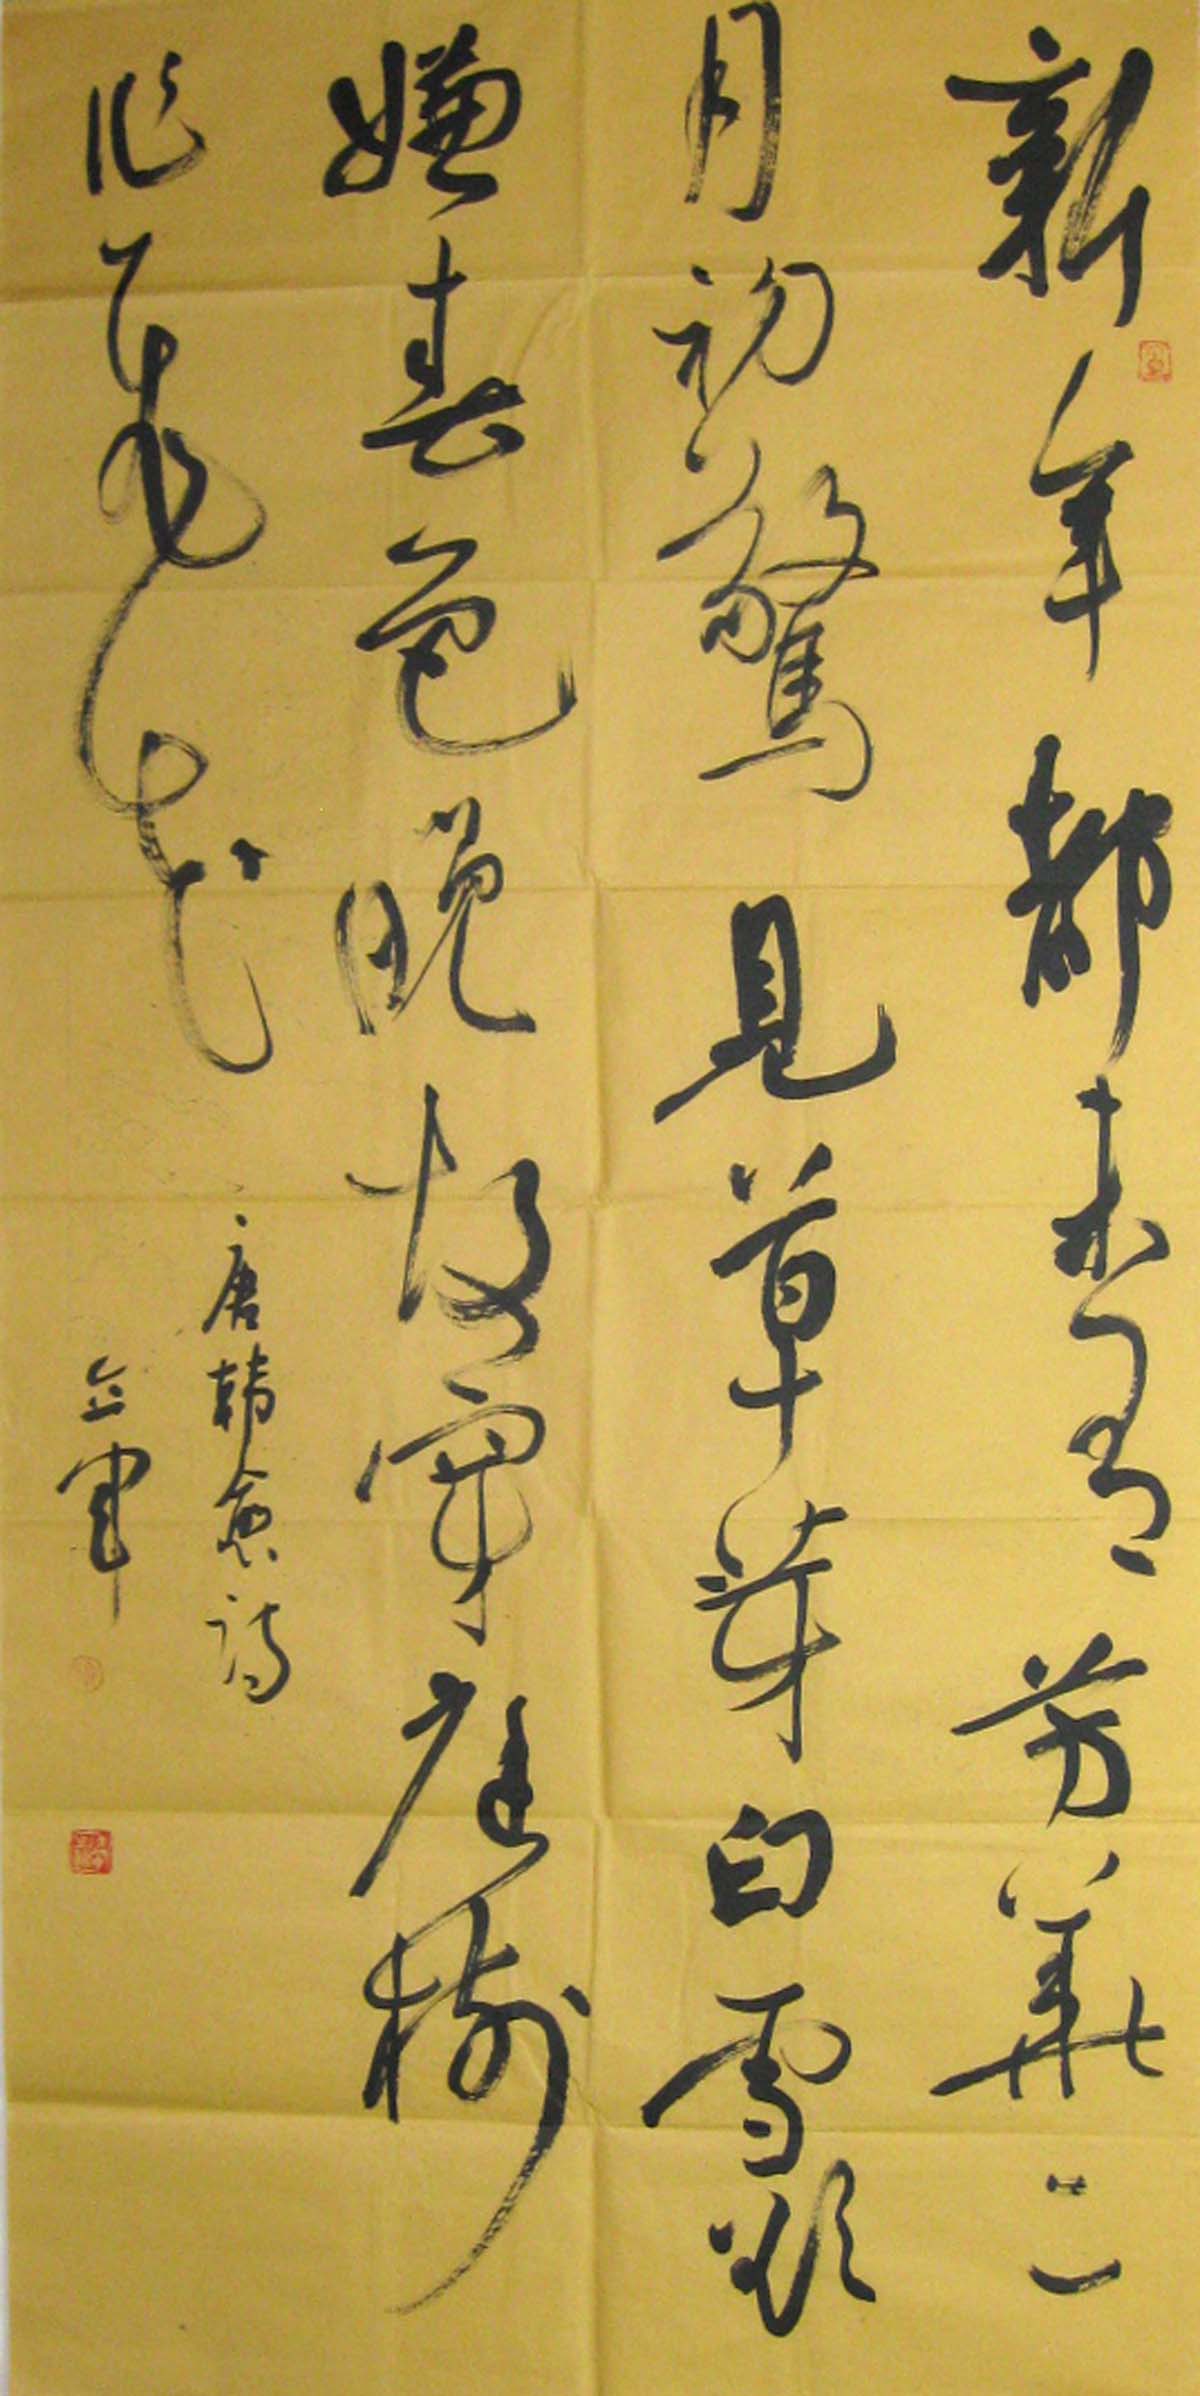 新年都未有芳華二
月初驚見草芽白雪卻
嫌春色晚故穿庭樹
作飛花
唐韓愈詩